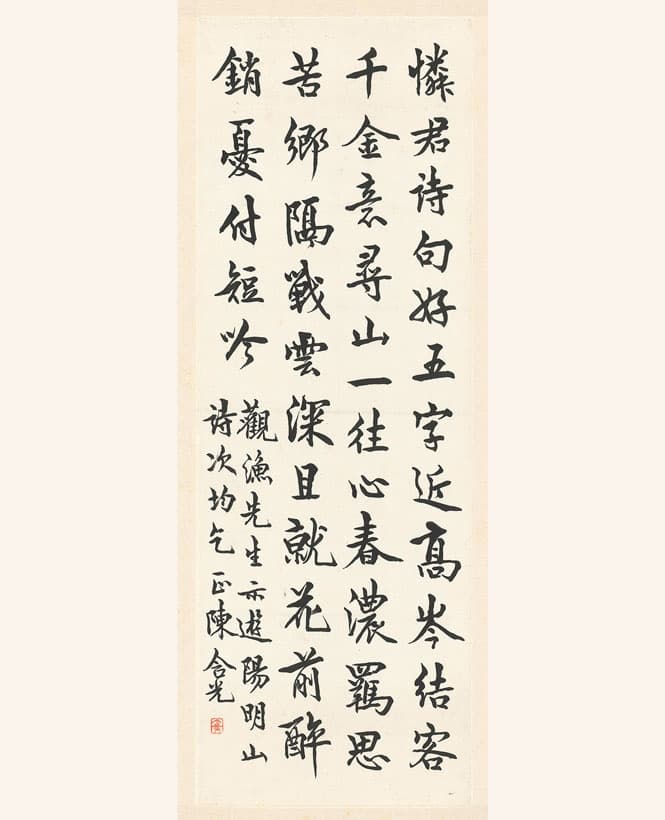 憐君詩句好五字近高岑結客
千金意尋山一往心春濃羈思
苦鄉隔戰雲深且就花前醉
銷憂付短吟
觀漁先生示遊陽明山
詩次均乞 正陳含光